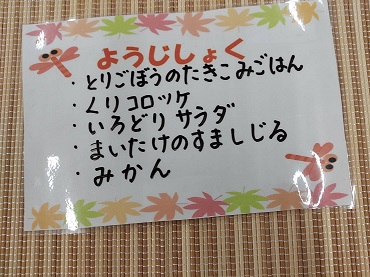 ようじしょく
・とりごぼうのたきこみごはん
・くりコロッケ
・いろどりサラダ
・まいたけのすましじる
・みかん